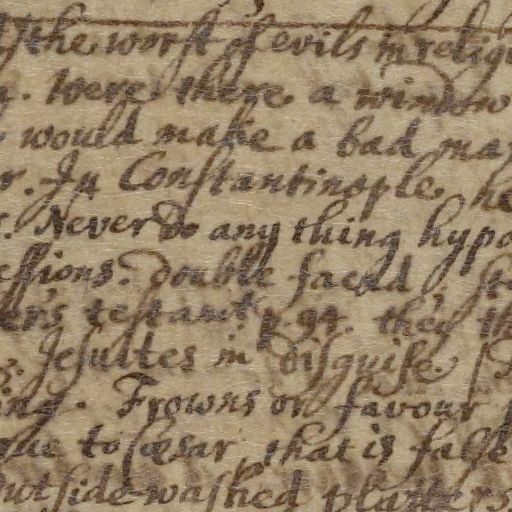 the worst of evils in relig
. Were there a window
would make a bad ma
r. In Constantinople he
. Never do any thing hypo
essions. double faced , st
er's testamt. p. 94. they th
s. Jesuites in disguise.
ing. Frowns or favour
rue to Cæsar, that is false
outside-washed platters